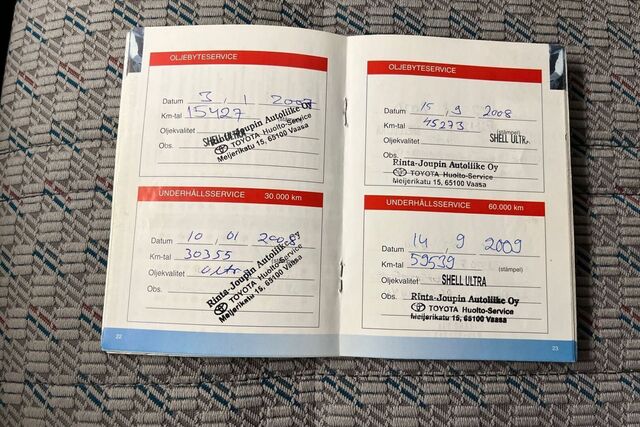 OLJEBYTESERVICE
Datum 3 . 1
Km-tal 15427
Oljekvalitet SHELL
Obs.
Rinta-Joupin Autoliike Oy
TOYOTA Huolto-Service
Meijerikatu 15, 65100 Vaasa
UNDERHÅLLSSERVICE 30.000 km
Datum 10 . 01
Km-tal 30355
Oljekvalitet
Obs.
Rinta-Joupin Autoliike Oy
TOYOTA Huolto-Service
Meijerikatu 15, 65100 Vaasa
22
OLJEBYTESERVICE
Datum 15 . 9 2008
Km-tal 45273
(stämpel)
Oljekvalitet SHELL ULTRA
Obs.
Rinta-Joupin Autoliike Oy
TOYOTA Huolto-Service
Meijerikatu 15, 65100 Vaasa
UNDERHÅLLSSERVICE 60.000 km
Datum 14 . 9 2009
Km-tal 59539
(stämpel)
Oljekvalitet SHELL ULTRA
Obs.
Rinta-Joupin Autoliike Oy
TOYOTA Huolto-Service
Meijerikatu 15, 65100 Vaasa
23